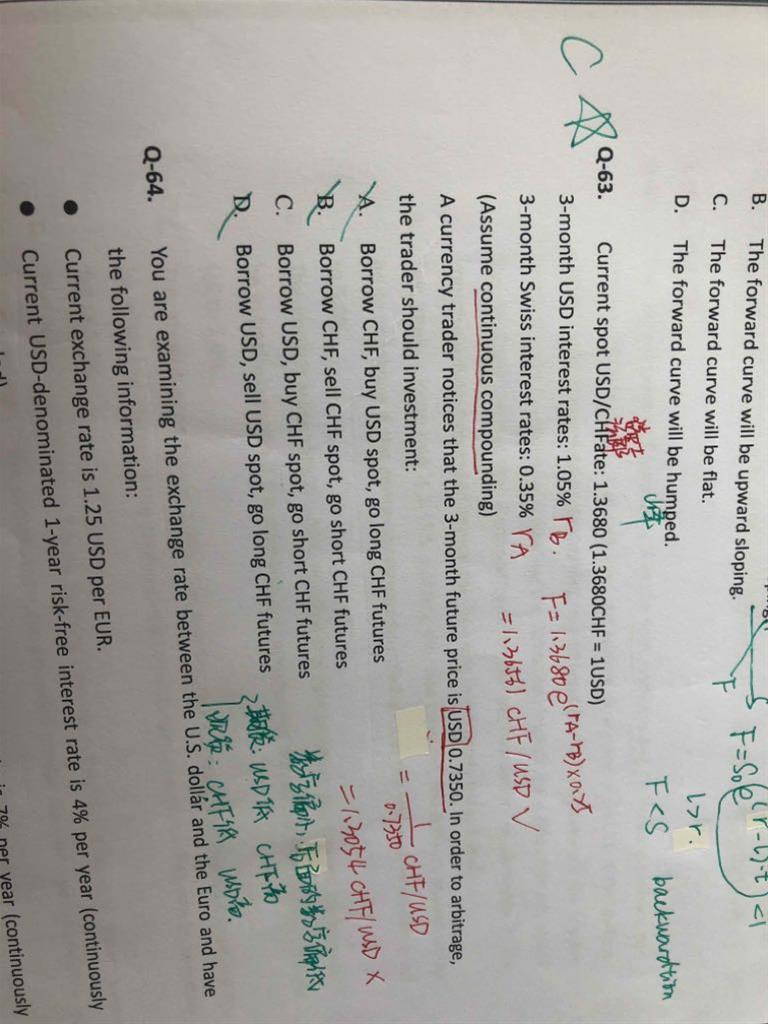 B. The forward curve will be upward sloping.
C. The forward curve will be flat.
D. The forward curve will be humped.
F
F = S₀e^(r-l)·t <1
l>r.
F<S backwardation
C ☆
Q-63. Current spot USD/CHFate: 1.3680 (1.3680CHF = 1USD)
3-month USD interest rates: 1.05% rB. F=1.3680e^(rA-rB)×0.25
3-month Swiss interest rates: 0.35% rA =1.36561 CHF/USD √
(Assume continuous compounding)
A currency trader notices that the 3-month future price is USD 0.7350. In order to arbitrage,
the trader should investment:
= 1/0.7350 CHF/USD
=1.3054 CHF/USD ×
A. Borrow CHF, buy USD spot, go long CHF futures
B. Borrow CHF, sell CHF spot, go short CHF futures
C. Borrow USD, buy CHF spot, go short CHF futures
D. Borrow USD, sell USD spot, go long CHF futures
期货: USD低 CHF高
现货: CHF低 USD高.
Q-64. You are examining the exchange rate between the U.S. dollar and the Euro and have
the following information:
● Current exchange rate is 1.25 USD per EUR.
● Current USD-denominated 1-year risk-free interest rate is 4% per year (continuously
7% per year (continuously